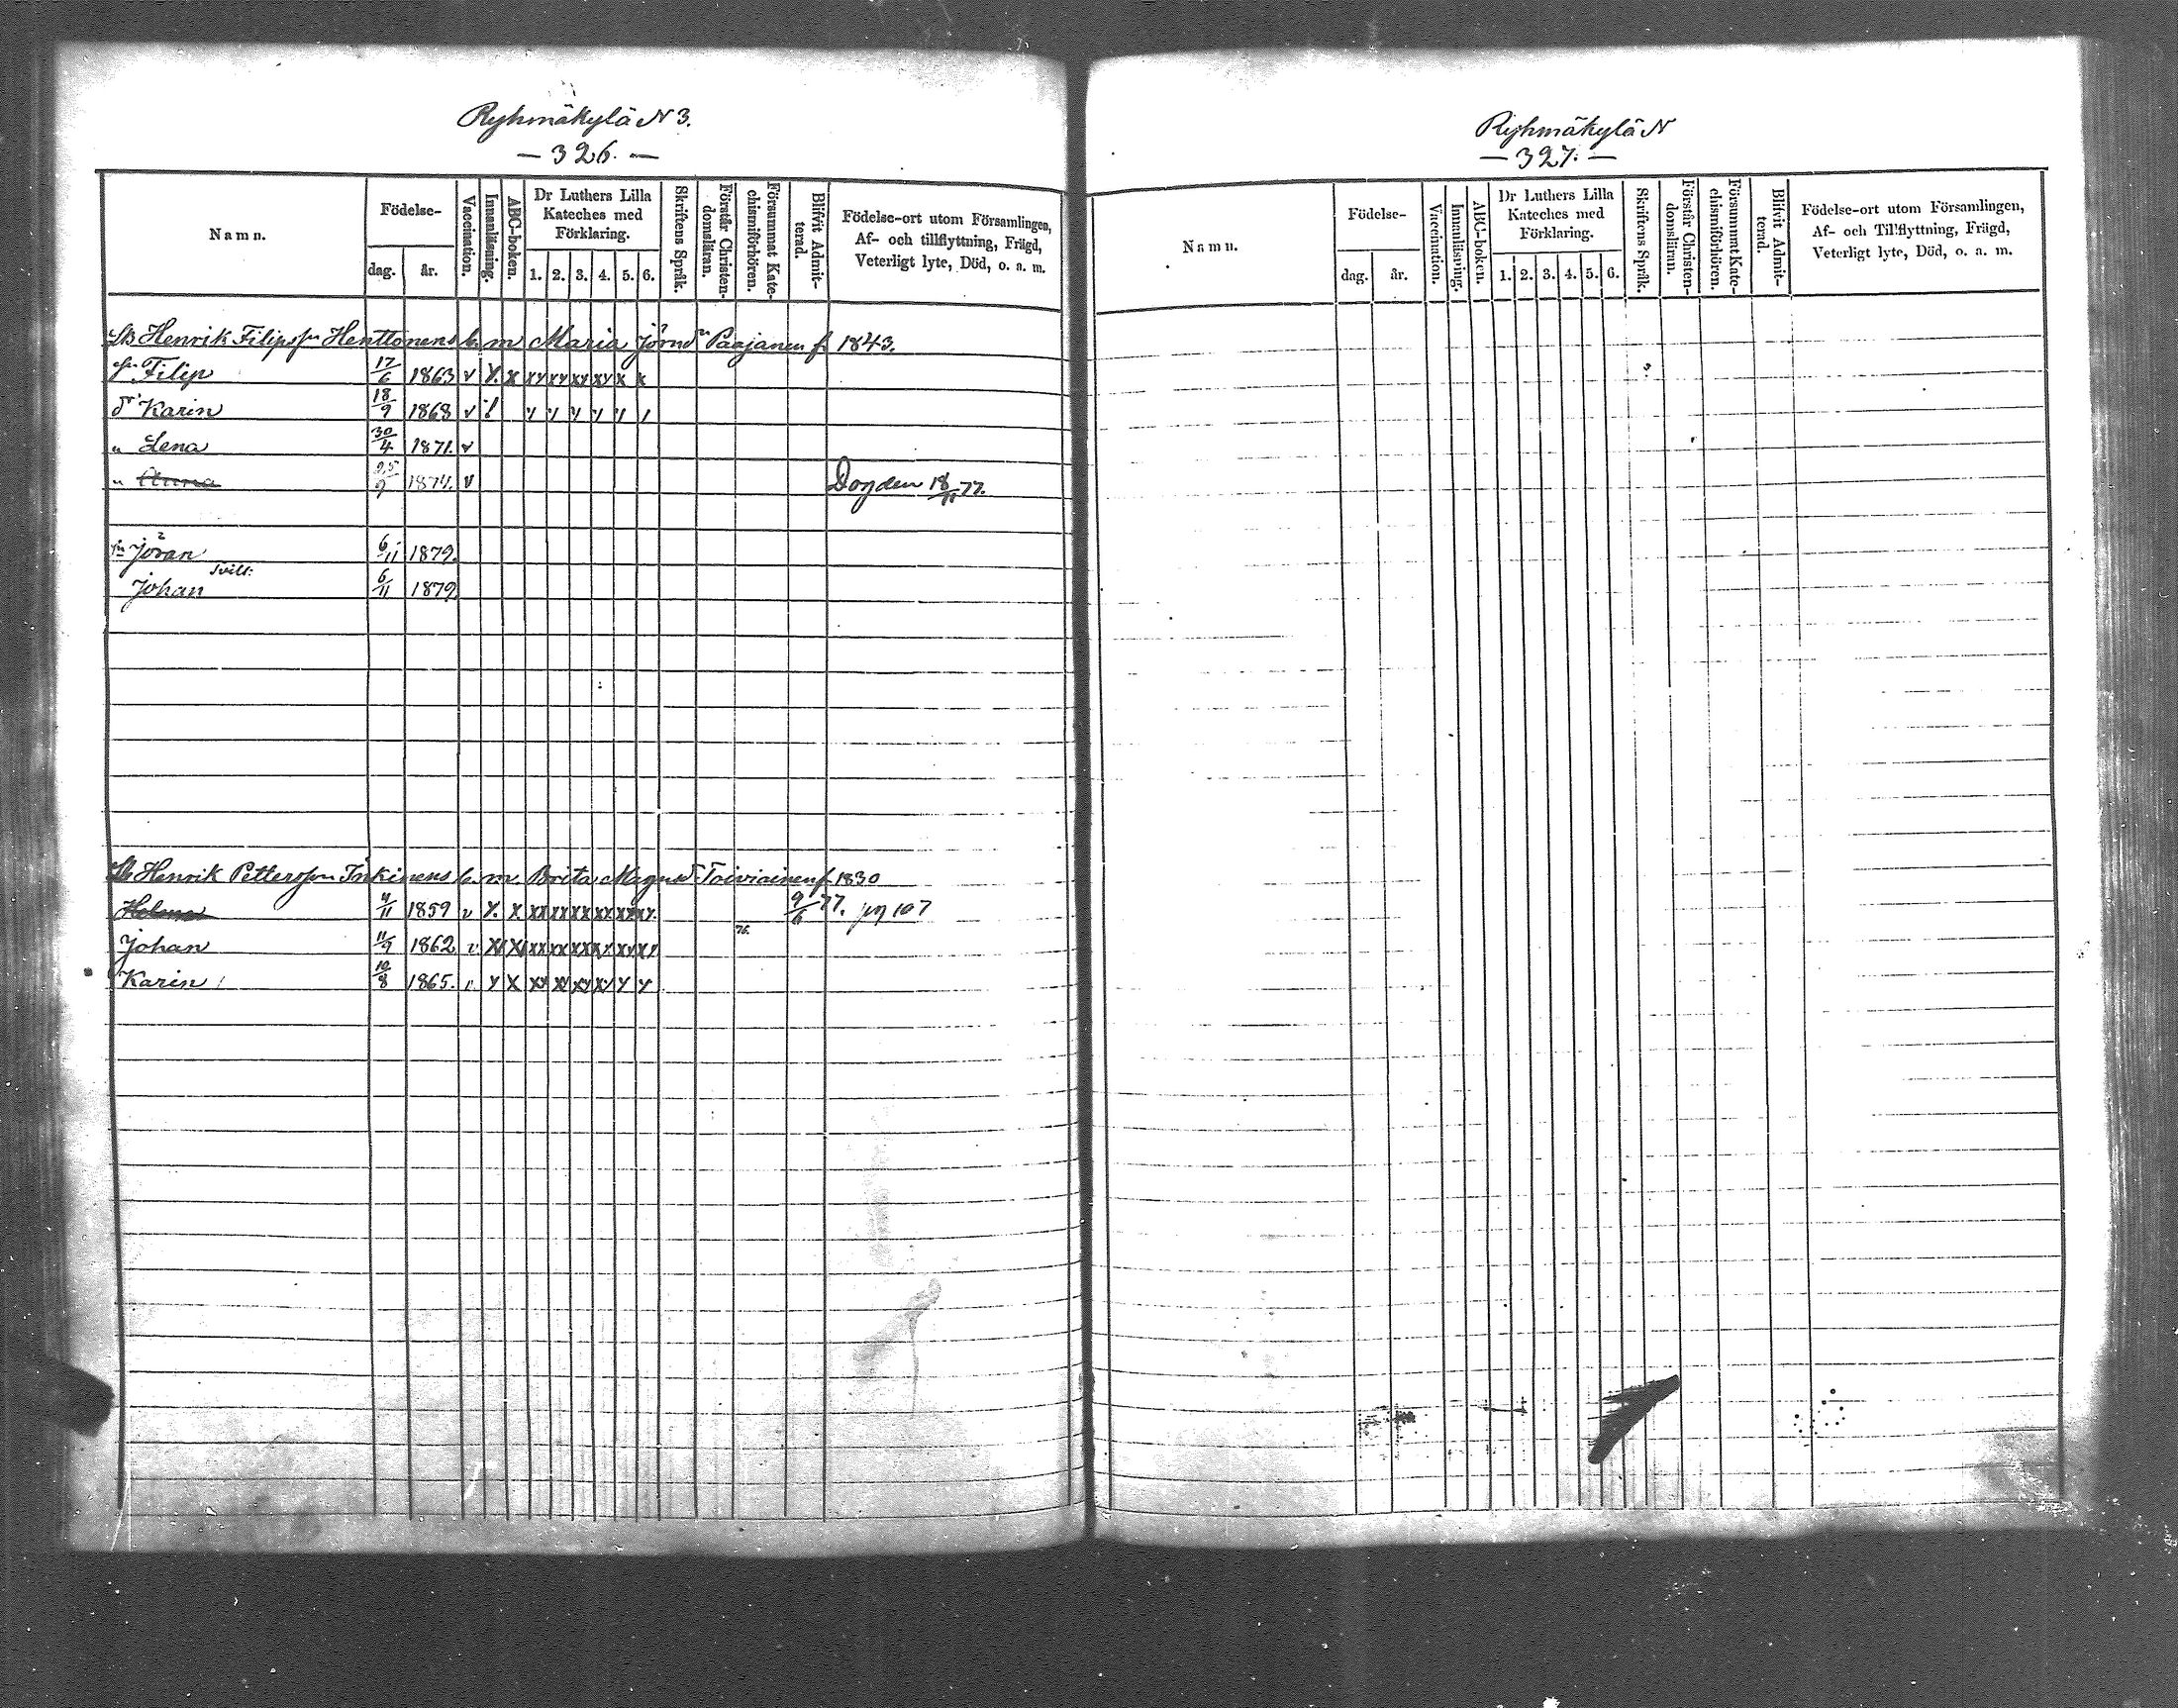 Ryhmäkylä N 3.
— 326. —
Namn.
Födelse-
dag.
år.
Vaccination.
Innanläsning.
ABC-boken.
Dr Luthers Lilla
Kateches med
Förklaring.
1. 2. 3. 4. 5. 6.
Skriftens Språk.
Förstår Christen-
domsläran.
Försummat Kate-
chismiförhören.
Blifvit Admit-
terad.
Födelse-ort utom Församlingen,
Af- och tillflyttning, Frägd,
Veterligt lyte, Död, o. a. m.
Henrik Filipssn Henttonens b. m Maria Jörnsdr Paajanen f. 1843.
Filip 17/6 1863 v Y. X xy xy xy xy x x
dr Karin 18/9 1868 v
" Lena 30/4 1871. v
" Anna 1874. v Dog den 18/11 77.
Jöran 6/11 1879.
tvill:
Johan 6/11 1879
Henrik Petterssn Inkinens b. m. Brita Magnsdr Toiviainen f. 1830
Helena 4/11 1859 v Y. X xx xx xx xx xy xy. 9/6 77. pg 107
76.
Johan 11/9 1862 v X X xx xx xx xy xv xy
Karin 10/8 1865. v Y X xy xy xy xy Y Y
Ryhmäkylä N
— 327. —
Namn.
Födelse-
dag.
år.
Vaccination.
Innanläsning.
ABC-boken.
Dr Luthers Lilla
Kateches med
Förklaring.
1. 2. 3. 4. 5. 6.
Skriftens Språk.
Förstår Christen-
domsläran.
Försummat Kate-
chismiförhören.
Blifvit Admit-
terad.
Födelse-ort utom Församlingen,
Af- och Tillflyttning, Frägd,
Veterligt lyte, Död, o. a. m.